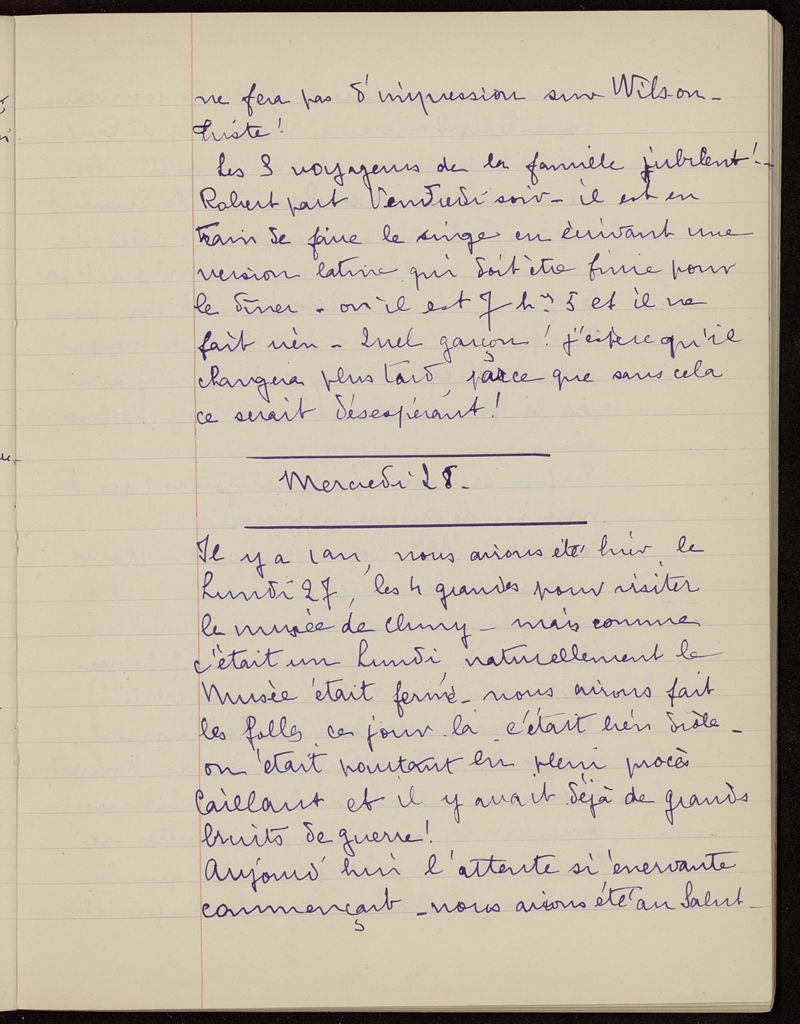 ne fera pas d'impression sur Wilson -
triste!
Les 3 voyageurs de la famille jubilent! -
Robert part Vendredi soir - il est en
train de faire le singe en écrivant une
version latine qui doit être finie pour
le dîner - or il est 7 h. 5 et il ne
fait rien - Quel garçon! j'espère qu'il
changera plus tard, parce que sans cela
ce serait désespérant!
Mercredi 28.
Il y a 1 an, nous avions été hier, le
Lundi 27, les 4 grandes pour visiter
le musée de Cluny - mais comme
c'était un Lundi naturellement le
Musée était fermé - nous avions fait
les folles ce jour là c'était bien drôle -
on était pourtant en plein procès
Caillaux et il y avait déjà de grands
bruits de guerre!
Aujourd'hui l'attente si énervante
commençait - nous avions été au Salut -